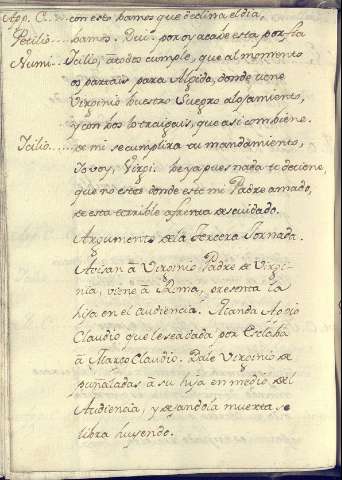 App. C.... con esto bamos que declina el dia,
Petilio.... bamos. Qui. por oy acabe esta porfia
Numi... Icilio, a todos cumple, que al momento
os partais para Algido, donde tiene
Virginio buestro Suegro alojamiento,
y con bos lo traigais, que asi combiene.
Icilio...... de mi se cumplira tu mandamiento,
Yo voy, Virgi. be ya pues nada te detiene,
que no estes donde este mi Padre amado,
de esta terrible afrenta descuidado.
Argumento de la Tercera Jornada.
Avisan â Virginio Padre de Virgi-
nia, viene â Roma, presenta la
hija en el audiencia. Manda Apio
Claudio que le sea dada por Esclaba
â Marco Claudio. Dale Virginio de
puñaladas â su hija en medio del
Audiencia, y dejandola muerta se
libra huyendo.